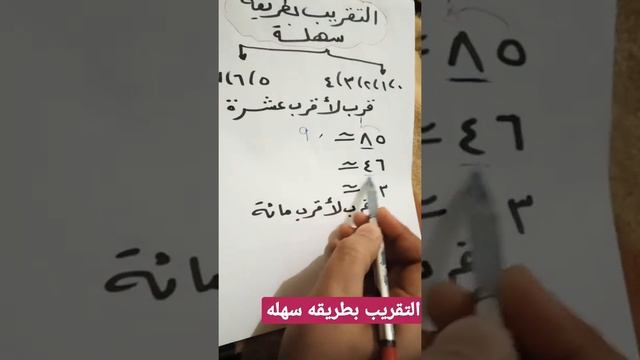 التقريب بطريقة
سهلة
٤ (٣ (٢ (١ (٠
٦ (٥
قرب لأقرب عشرة
٨٥ ≃ ٩٠
٤٦ ≃
٣ ≃
قرب لأقرب مائة
التقريب بطريقه سهله